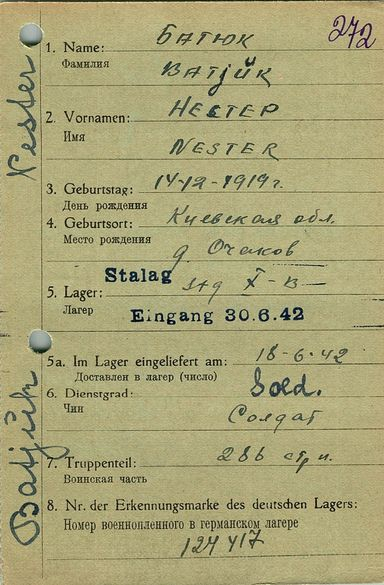 272
1. Name: Батюк
Фамилия
Batjük
2. Vornamen: Нестер
Имя
Nester
3. Geburtstag: 14-12-1919 г.
День рождения
4. Geburtsort: Киевская обл.
Место рождения
д. Очаков
Stalag
5. Lager: X-B
Лагер
Eingang 30.6.42
5a. Im Lager eingeliefert am: 18-6-42
Доставлен в лагер (число)
6. Dienstgrad: Sold.
Чин
Солдат
7. Truppenteil: 286 стр п.
Воинская часть
8. Nr. der Erkennungsmarke des deutschen Lagers:
Номер военнопленного в германском лагере
124417
Batjük Nester